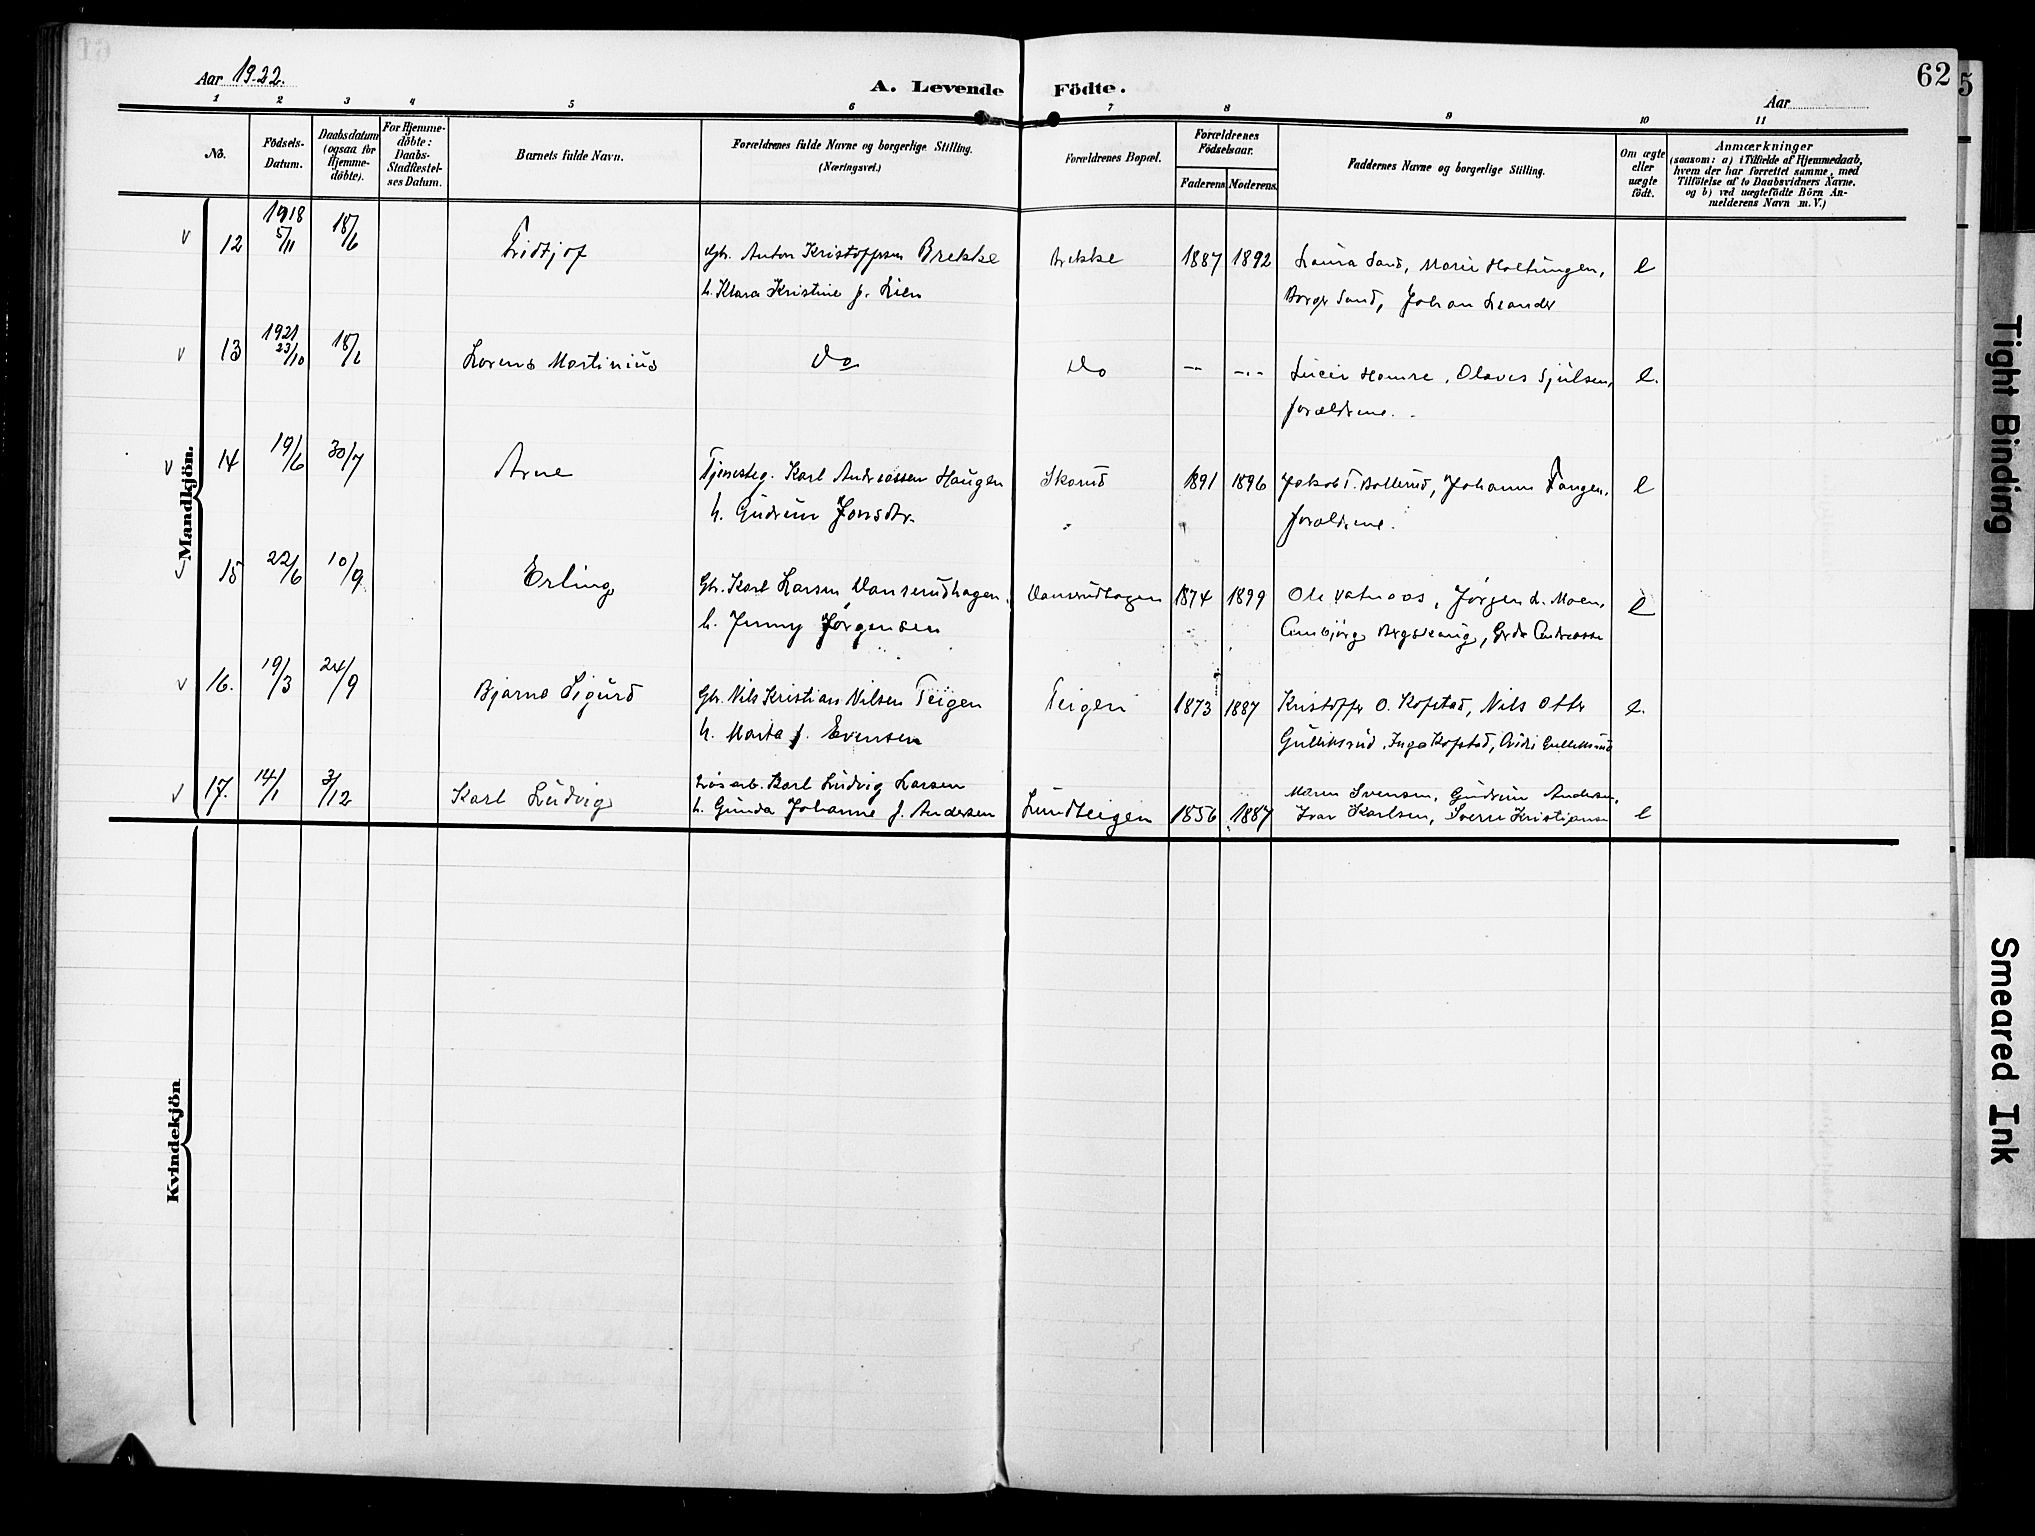 62
Aar 1922.
A. Levende Födte.
Aar
1 2 3 4 5 6 7 8 9 10 11
No.
Födsels-
Datum.
Daabsdatum
(ogsaa for
Hjemme-
döbte).
For Hjemme-
döbte:
Daabs-
Stadfæstel-
ses Datum.
Barnets fulde Navn.
Forældrenes fulde Navne og borgerlige Stilling.
(Næringsvei.)
Forældrenes Bopæl.
Forældrenes
Födselsaar.
Faderens
Moderens.
Faddernes Navne og borgerlige Stilling.
Om ægte
eller
uægte
födt.
Anmærkninger
(saasom: a) i Tilfælde af Hjemmedaab,
hvem der har forrettet samme, med
Tilföielse af to Daabsvidners Navne.
og b) ved uægtefödte Börn An-
melderens Navn m. V.)
Mandkjön.
12 1918 5/11 18/6 Fridtjof Gbr. Anton Kristoffersen Brekke Brekke 1887 1892 Laura Sand, Marie Holtungen, e
h. Klara Kristine f. Lien Borger Sand, Johan Leander
13 1921 23/10 18/6 Lorens Martinius Do Do -- -.- Lucie Hamre, Olaves Sjulsen, e.
forældrene.
14 19/6 30/7 Arne Tjenesteg. Karl Andreassen Haugen Skarud 1891 1896 Jakob T. Bollerud, Johanne Fangen, e
h. Gudrun Jonsdtr. forældrene.
15 22/6 10/9 Erling Gbr. Karl Larsen Danserudhagen Danserudhagen 1874 1899 Ole Vatnaas, Jørgen L. Moen, e
h. Jenny Jørgensen
16. 19/3 24/9 Bjarne Sigurd Gbr. Nils Kristian Nilsen Teigen Teigen 1873 1887 Kristoffer O. Kopstad, Nils Otto e.
h. Marta f. Evensen Gulliksrud, Inga Kopstad, Gulliksrud
17. 14/1 3/12 Karl Ludvig Løsarb. Karl Ludvig Larsen Lundteigen 1856 1887 Maren Svensen, Gudrun Andersen, e
h. Gunda Johanne f. Andersen Ivar Karlsen, Sverre Kristiansen
Kvindekjön
Tight Binding
Smeared Ink
5